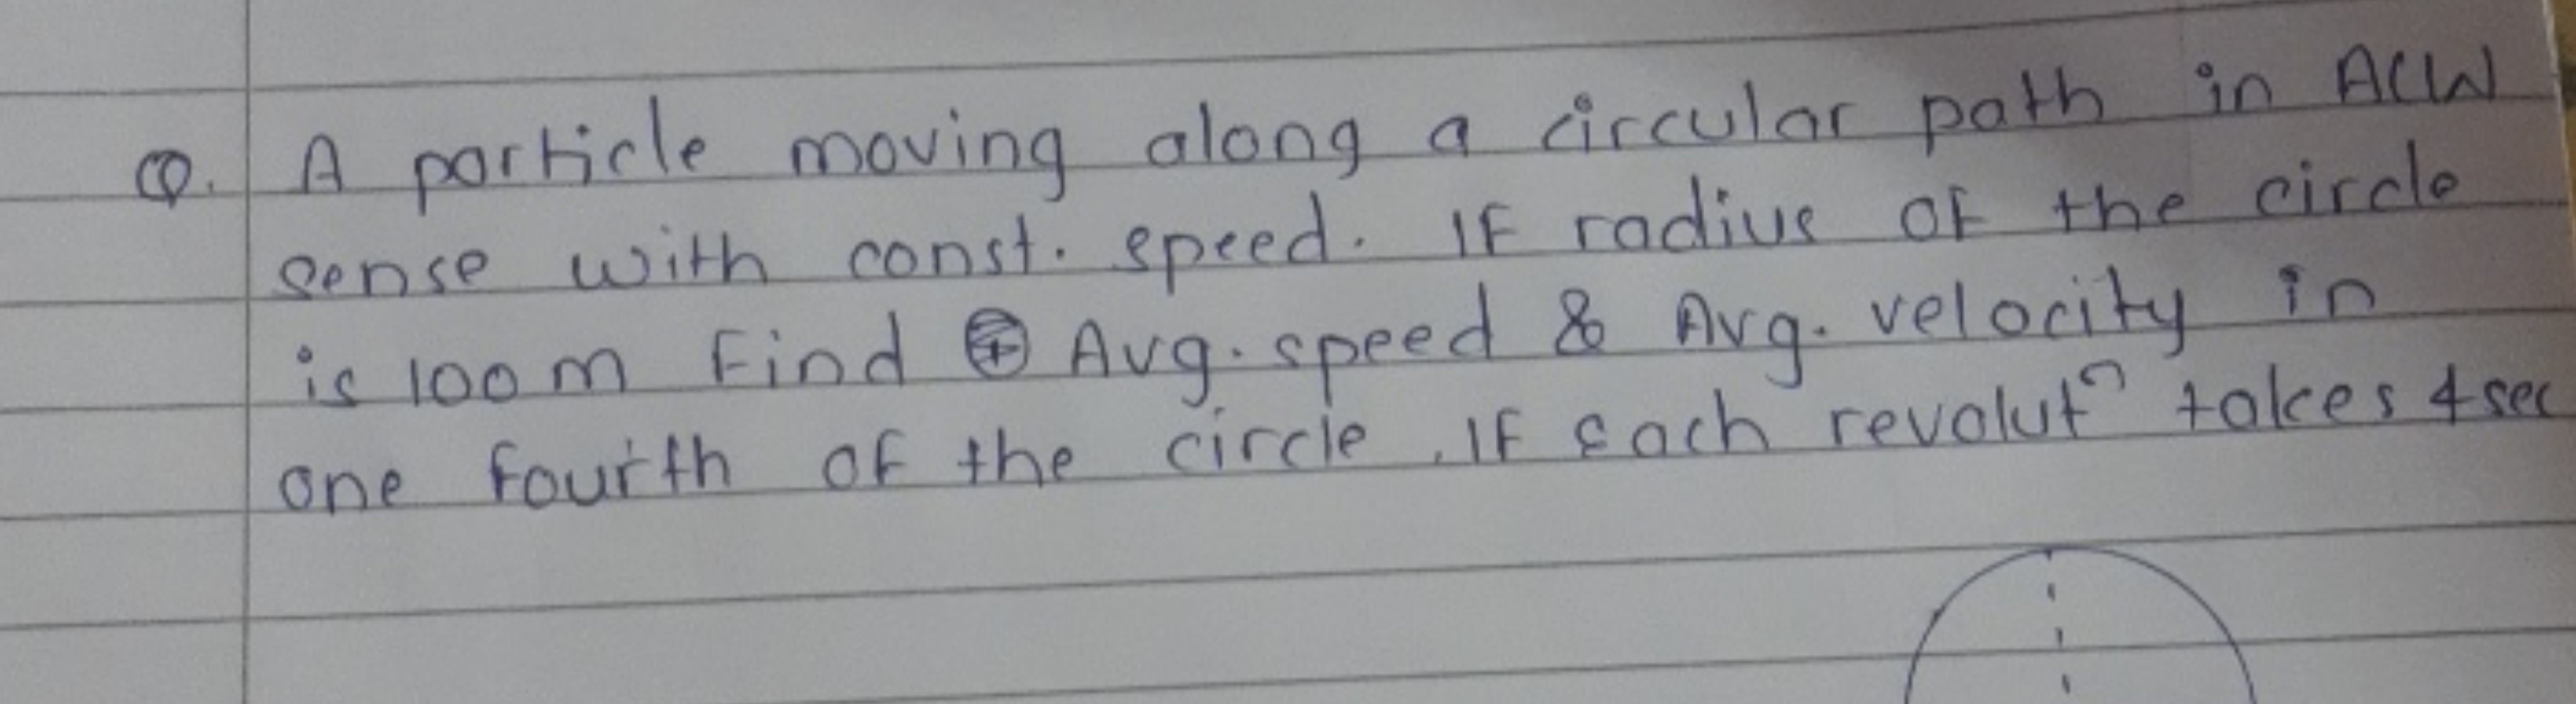 Q. A particle moving along a circular path in ACW
sense with const. speed. If radius of the circle
is 100 m Find Avg. speed & Avg. velocity in
one fourth of the circle. If each revolutⁿ takes 4 sec